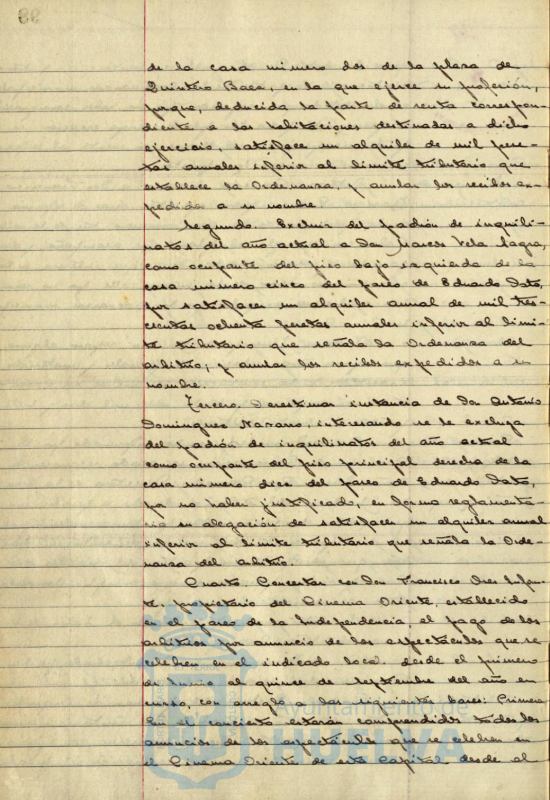 de la casa número dos de la plaza de
Quintero Baea, en la que ejerce su profesión,
porque, deducida la parte de renta correspon-
diente a las habitaciones destinadas a dicho
ejercicio, satisface un alquiler de mil pese-
tas anuales inferior al límite tributario que
establece la Ordenanza, y anular los recibos ex-
pedidos a su nombre.
Segundo. Excluir del padrón de inquili-
natos del año actual a Don Marcos Vela
como ocupante del piso bajo izquierda de la
casa número cinco del paseo de Eduardo Dato,
por satisfacer un alquiler anual de mil tres-
cientas ochenta pesetas anuales inferior al lími-
te tributario que señala la Ordenanza del
arbitrio; y anular los recibos expedidos a su
nombre.
Tercero. Desestimar instancia de Don Antonio
Domínguez Navarro, interesando se le excluya
del padrón de inquilinatos del año actual
como ocupante del piso principal derecha de la
casa número diez del paseo de Eduardo Dato,
por no haber justificado, en forma reglamenta-
ria su alegación de satisfacer un alquiler anual
inferior al límite tributario que señala la Orde-
nanza del arbitrio.
Cuarto. Concertar con Don Francisco
te, propietario del Cinema Oriente, establecido
en el paseo de la Independencia, el pago de los
arbitrios por anuncio de los espectáculos que se
celebren en el indicado local desde el primero
de Junio al quince de Septiembre del año en
curso, con arreglo a las siguientes bases: Primera
En el concierto estarán comprendidos todos los
anuncios de los espectáculos que se celebren en
el Cinema Oriente de esta Capital, desde el
Ayuntamiento de
HUELVA